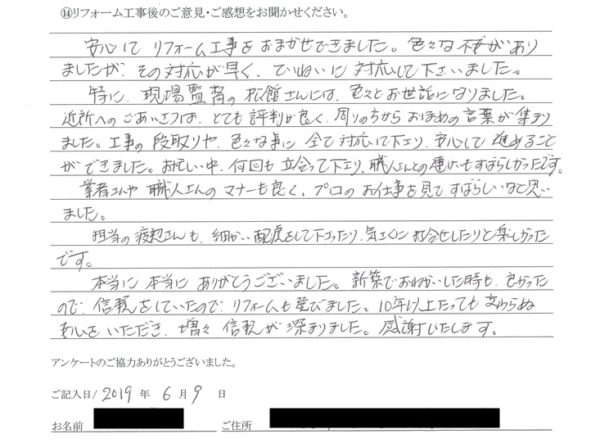 ⑭リフォーム工事後のご意見・ご感想をお聞かせください。
安心して リフォーム工事をおまかせできました。色々な事があり
ましたが、その対応が早く、ていねいに対応して下さいました。
特に、現場監督の 松館さんには、色々とお世話になりました。
近所へのごあいさつは、とても評判が良く、周りの方からおほめの言葉が集まり
ました。工事の段取りや、色々な事に 全て対応して下さり、安心して 進めること
ができました。お忙しい中、何回も 立会って下さり、職人さんとの連けいもすばらしかったです。
業者さんや 職人さんのマナーも良く、プロのお仕事を見て すばらしいなと思い
ました。
担当の さんも、細かい配慮をして下さったり、気さくに お話合せしたりと楽しかった
です。
本当に 本当に ありがとうございました。新築でおねがいした時も、良かった
ので、信頼をしていたので リフォームも選びました。10年以上たっても 変わらぬ
安心をいただき、増々 信頼が 深まりました。感謝いたします。
アンケートのご協力ありがとうございました。
ご記入日/2019 年 6 月 9 日
お名前 ご住所